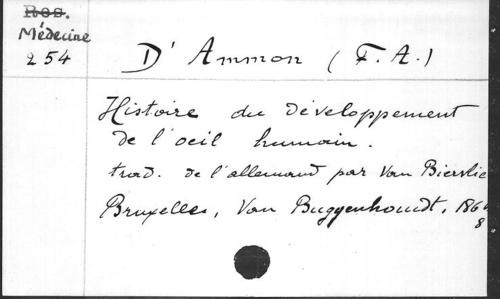 Res.
Médecine
254
D'Ammon (F.A.)
Histoire du développement
de l'oeil humain.
trad. de l'allemand par Van Biervlie
Bruxelles, Van Buggenhoudt, 186
8